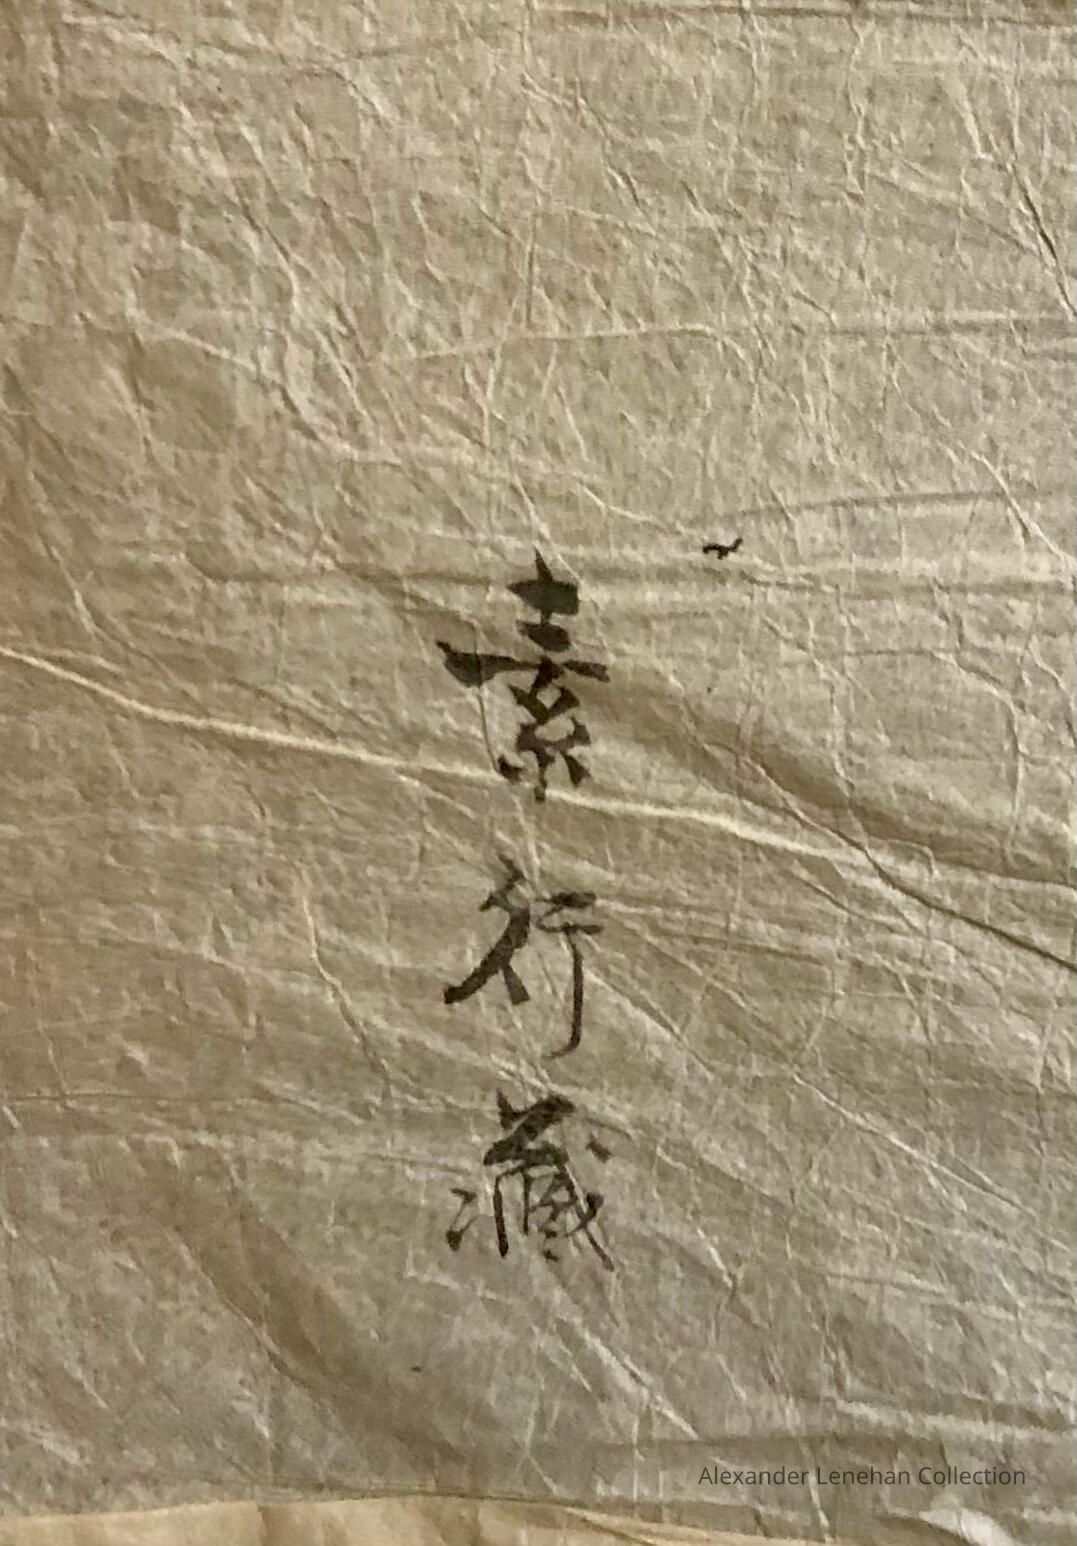 素行蔵
Alexander Lenehan Collection